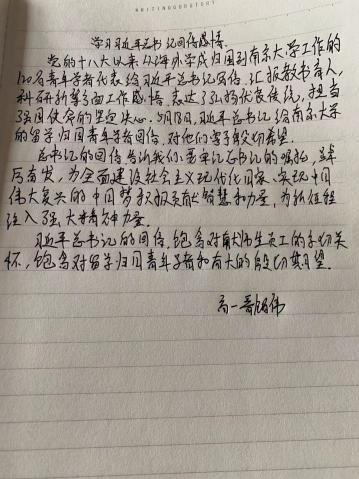 WRITING
学习习近平总书记回信感悟
党的十八大以来从海外学成归国到南京大学工作的
120名青年学者代表给习近平总书记写信,汇报教书育人,
科研创新等方面工作感悟,表达了弘扬优良传统,担当
强国使命的坚定决心。5月18日,习近平总书记给南京大学
的留学归国青年学者回信,对他们寄予殷切希望。
总书记的回信告诉我们要牢记总书记的嘱托,
厉奋发,为全面建设社会主义现代化国家、实现中国
伟大复兴的中国梦积极贡献智慧和力量,为新征程
注入强大青春力量。
习近平总书记的回信,饱含对南大师生员工的亲切关
怀,饱含对留学归国青年学者和南大的殷切期望。
高一